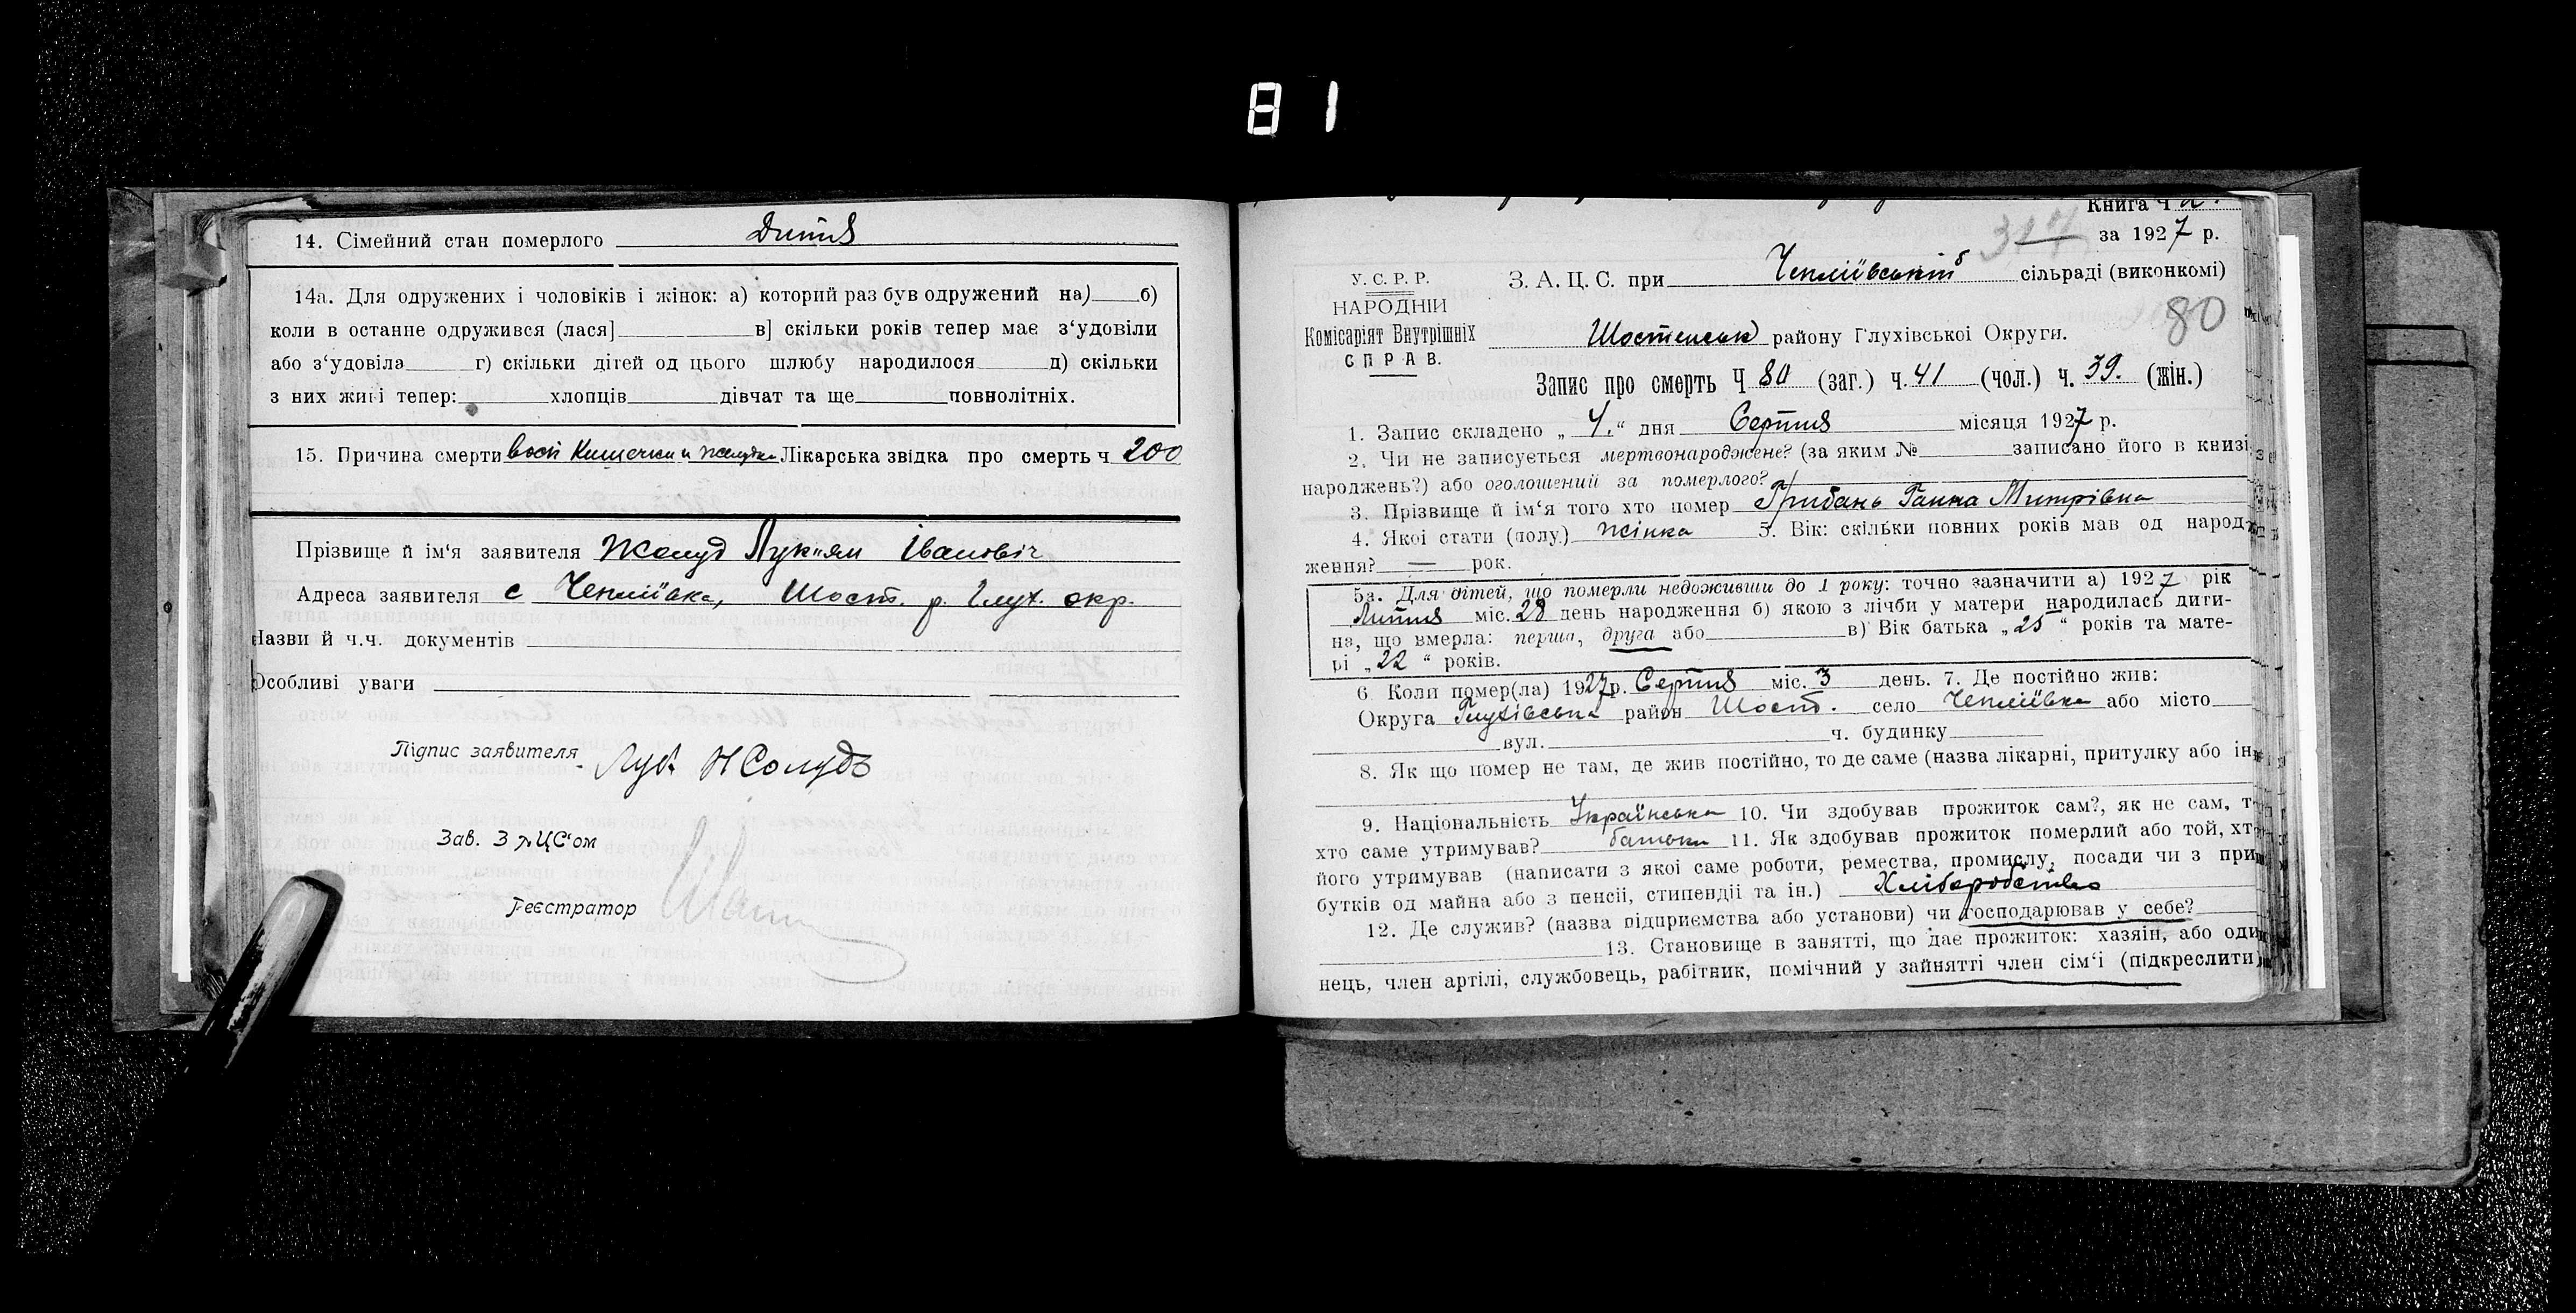 81
14. Сімейний стан померлого Дитя
14а. Для одружених і чоловіків і жінок: а) который раз був одружений на) б)
коли в останнє одружився (лася] в] скільки років тепер має з‘удовіли
або з‘удовіла г) скільки дітей од цього шлюбу народилося д) скільки
з них живі тепер: хлопців дівчат та ще повнолітніх.
15. Причина смерти восп Кишечки и желудка Лікарська звідка про смерть ч 200
Прізвище й ім'я заявителя Жолуд Лук"ян Івановіч
Адреса заявителя с Чепліївка, Шост. р. Глух. окр.
Назви й ч.ч. документів
Особливі уваги
Підпис заявителя Жолудь
Зав. ЗАЦС‘ом
Реєстратор
Книга ч 2.
314 за 1927 р.
У.С.Р.Р.
НАРОДНІЙ
Комісаріят Внутрішніх
СПРАВ.
З. А. Ц. С. при Чепліївській сільраді (виконкомі)
80
Шостенськ району Глухівської Округи.
Запис про смерть Ч 80 (заг.) ч. 41 (чол.) ч. 39. (жін.)
1. Запис складено „ 4. “ дня Серпня місяця 1927 р.
2. Чи не записується мертвонароджене? (за яким № записано його в книзі
народжень?) або оголошений за померлого?
3. Прізвище й ім‘я того хто помер Грибань Ганна Митрівна
4. Якої стати (полу) жінка 5. Вік: скільки повних років мав од народ-
ження? — рок.
5а. Для дітей, що померли недоживши до 1 року: точно зазначити а) 1927 рік
Липня міс. 28 день народження б) якою з лічби у матери народилась дити-
на, що вмерла: перша, друга або в) Вік батька „25“ років та мате-
рі „22“ років.
6. Коли помер(ла) 1927р. Серпня міс. 3 день. 7. Де постійно жив:
Округа Глухівська район Шост. село Чепліївка або місто
вул. ч. будинку
8. Як що помер не там, де жив постійно, то де саме (назва лікарні, притулку або ін
9. Національність Українська 10. Чи здобував прожиток сам?, як не сам, т
хто саме утримував? батьки 11. Як здобував прожиток померлий або той, хт
його утримував (написати з якої саме роботи, ремества, промислу, посади чи з при
бутків од майна або з пенсії, стипендії та ін.) Хліборобство
12. Де служив? (назва підприємства або установи) чи господарював у себе?
13. Становище в занятті, що дає прожиток: хазяїн, або оди
нець, член артілі, службовець, рабітник, помічний у зайнятті член сім‘ї (підкреслити)